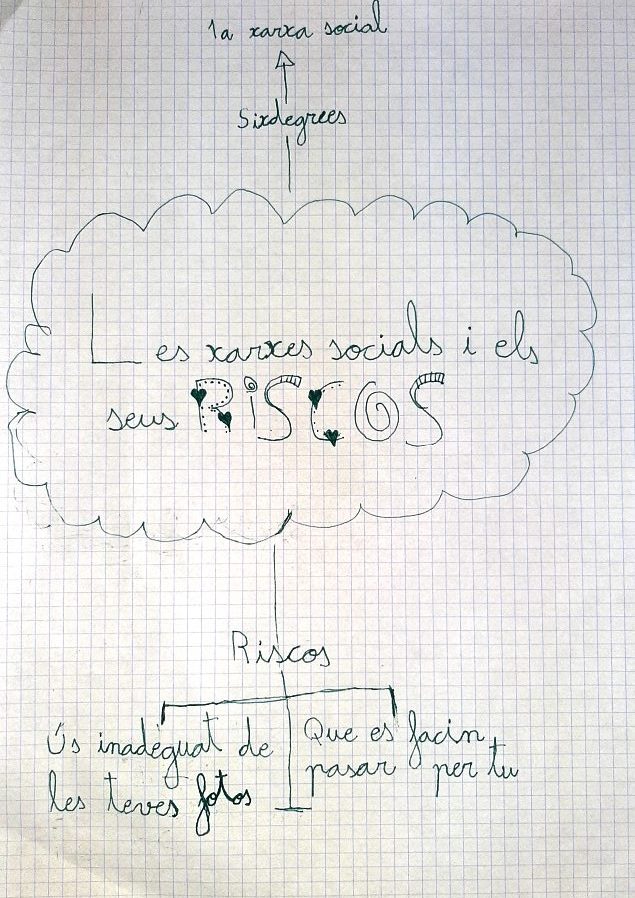 1a xarxa social
Sixdegrees
Les xarxes socials i els
seus RiSCOS
Riscos
Ús inadèguat de
les teves fotos
Que es facin
pasar per tu